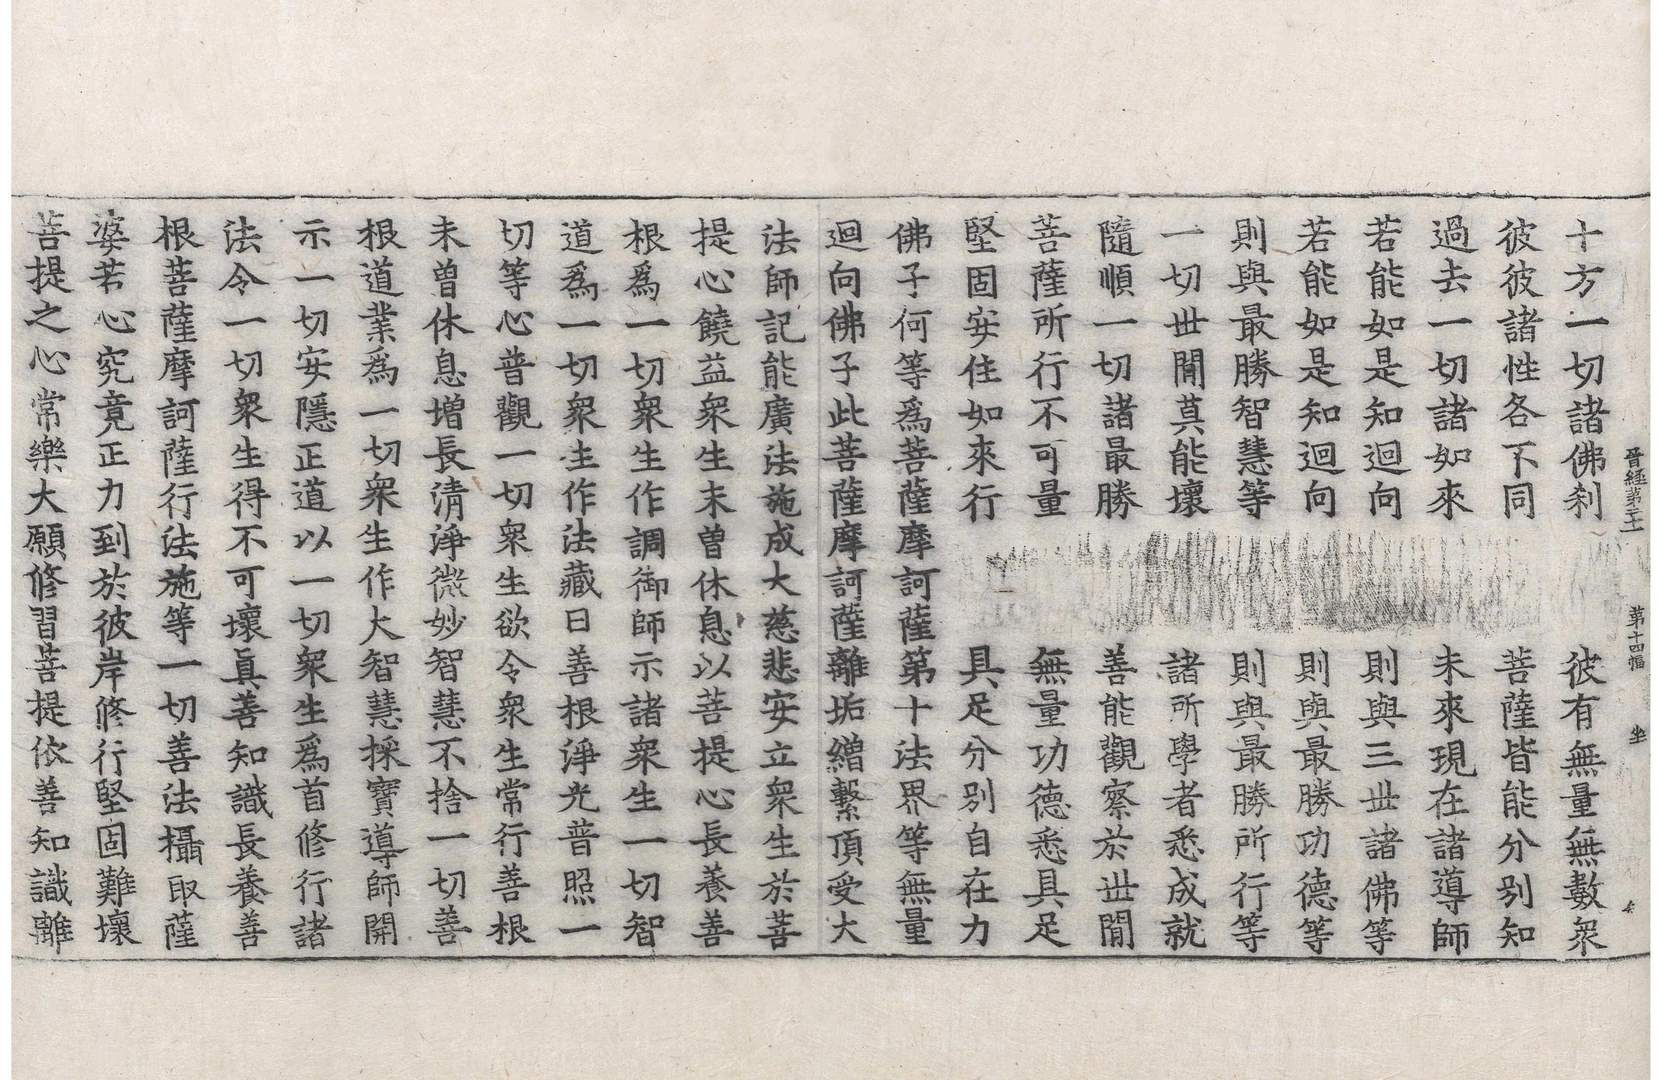 晉經第二十 第十四幅 坐
十方一切諸佛刹 彼有無量無數衆
彼彼諸性各不同 菩薩皆能分別知
過去一切諸如來 未來現在諸導師
若能如是知迴向 則與三世諸佛等
若能如是知迴向 則與最勝功德等
則與最勝智慧等 則與最勝所行等
一切世閒莫能壞 諸所學者悉成就
隨順一切諸最勝 善能觀察於世閒
菩薩所行不可量 無量功德悉具足
堅固安住如來行 具足分別自在力
佛子何等爲菩薩摩訶薩第十法界等無量
迴向佛子此菩薩摩訶薩離垢繒繫頂受大
法師記能廣法施成大慈悲安立衆生於菩
提心饒益衆生未曾休息以菩提心長養善
根爲一切衆生作調御師示諸衆生一切智
道爲一切衆生作法藏日善根淨光普照一
切等心普觀一切衆生欲令衆生常行善根
未曾休息增長清淨微妙智慧不捨一切善
根道業爲一切衆生作大智慧採寶導師開
示一切安隱正道以一切衆生爲首修行諸
法令一切衆生得不可壞眞善知識長養善
根菩薩摩訶薩行法施等一切善法攝取薩
婆若心究竟正力到於彼岸修行堅固難壞
菩提之心常樂大願修習菩提依善知識離